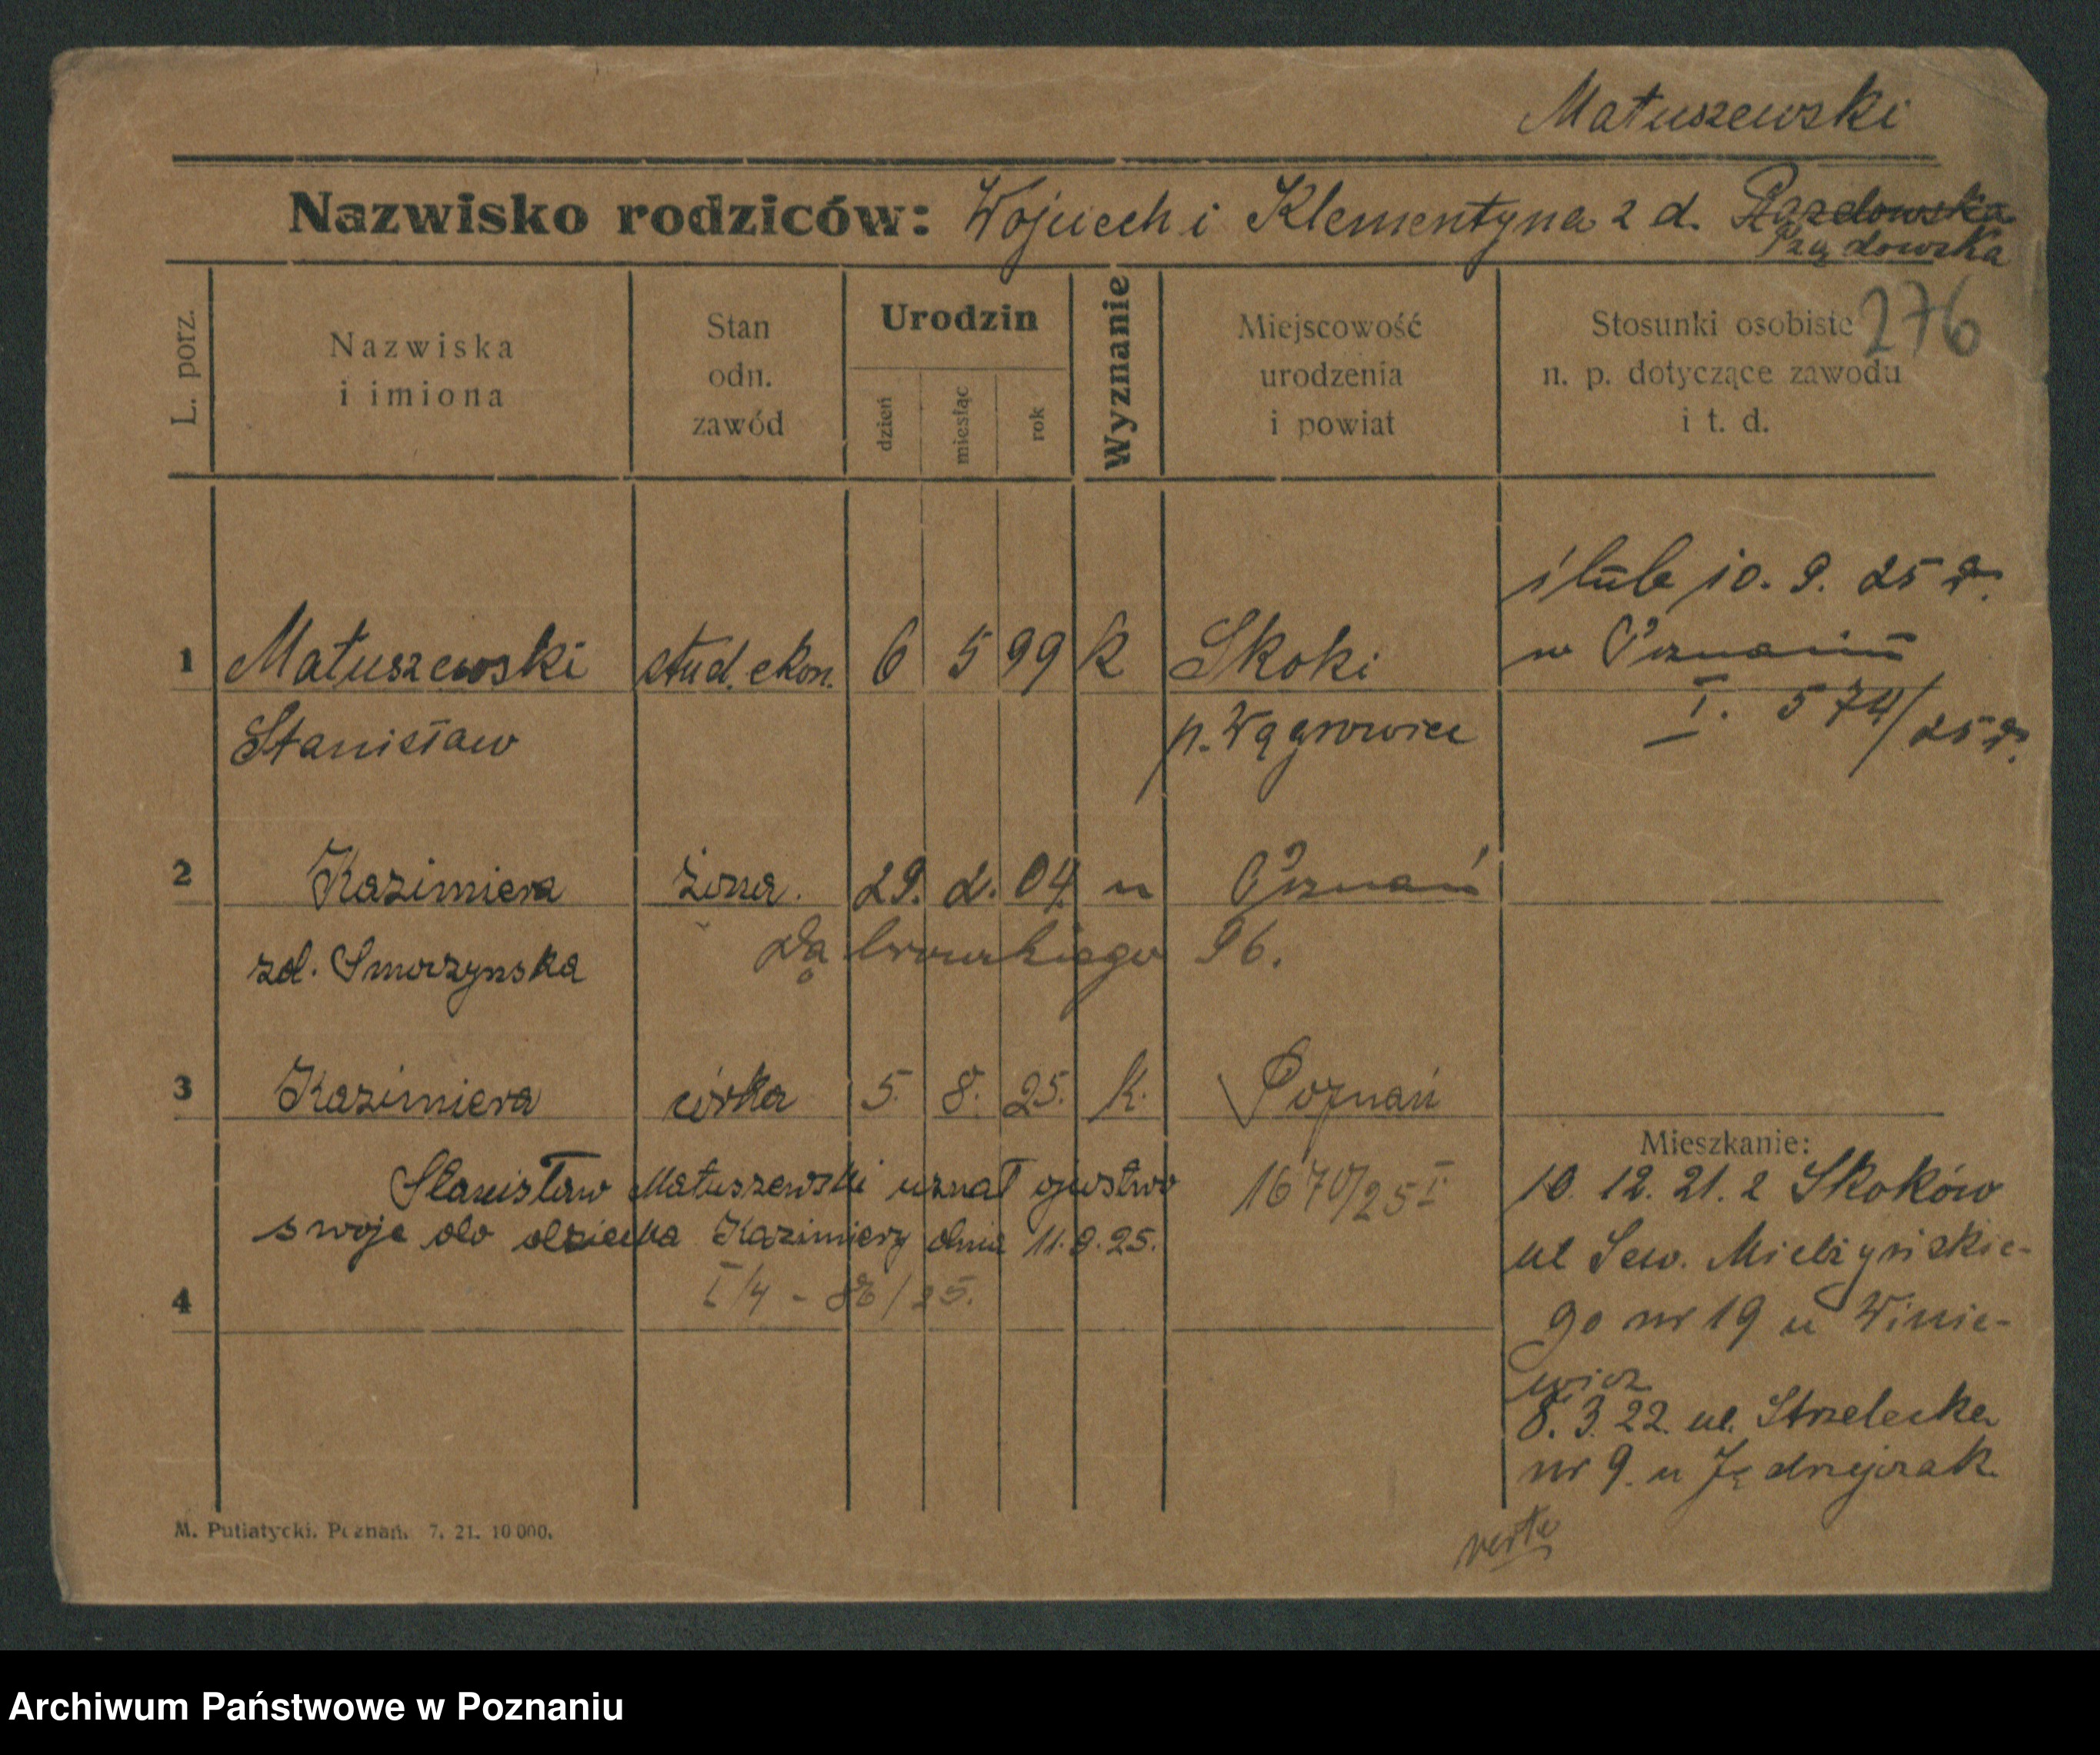 Matuszewski
Nazwisko rodziców: Wojciech i Klementyna z d.
Rządowska
276
L. porz.
Nazwiska i imiona
Stan odn. zawód
Urodzin
dzień
miesiąc
rok
Wyznanie
Miejscowość urodzenia i powiat
Stosunki osobiste n. p. dotyczące zawodu i t. d.
ślub 10. 9. 25 r.
w Poznaniu
I. 574/25 r.
1 Matuszewski stud. ekon. 6 5 99 K Skoki
Stanisław p. Wągrowiec
2 Kazimiera żona. 29. 2. 04. " Poznań
zd. Smorzynska Dąbrowskiego 96.
3 Kazimiera córka 5. 8. 25. K. Poznań
Stanisław Matuszewski uznał ojcostwo 1670/25 I
swoje do dziecka Kazimiery dnia 11.9.25.
I/4 - 86/25.
4
Mieszkanie:
10. 12. 21. z Skoków
ul Sew. Mielżyńskie-
go nr 19 u Winie-
wicz
8. 3. 22. ul. Strzelecka
nr 9. u Jędrzejczak.
verte
M. Putiatycki. Poznań. 7. 21. 10 000.
Archiwum Państwowe w Poznaniu